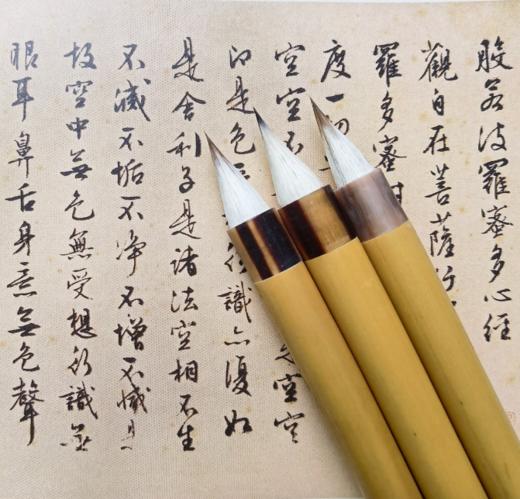 般若波羅蜜多心經
觀自在菩薩行
羅多蜜時
度一切
空空不是空空
即是色行識亦復如
是舍利子是諸法空相不生
不滅不垢不淨不增不減是
故空中無色無受想行識無
眼耳鼻舌身意無色聲